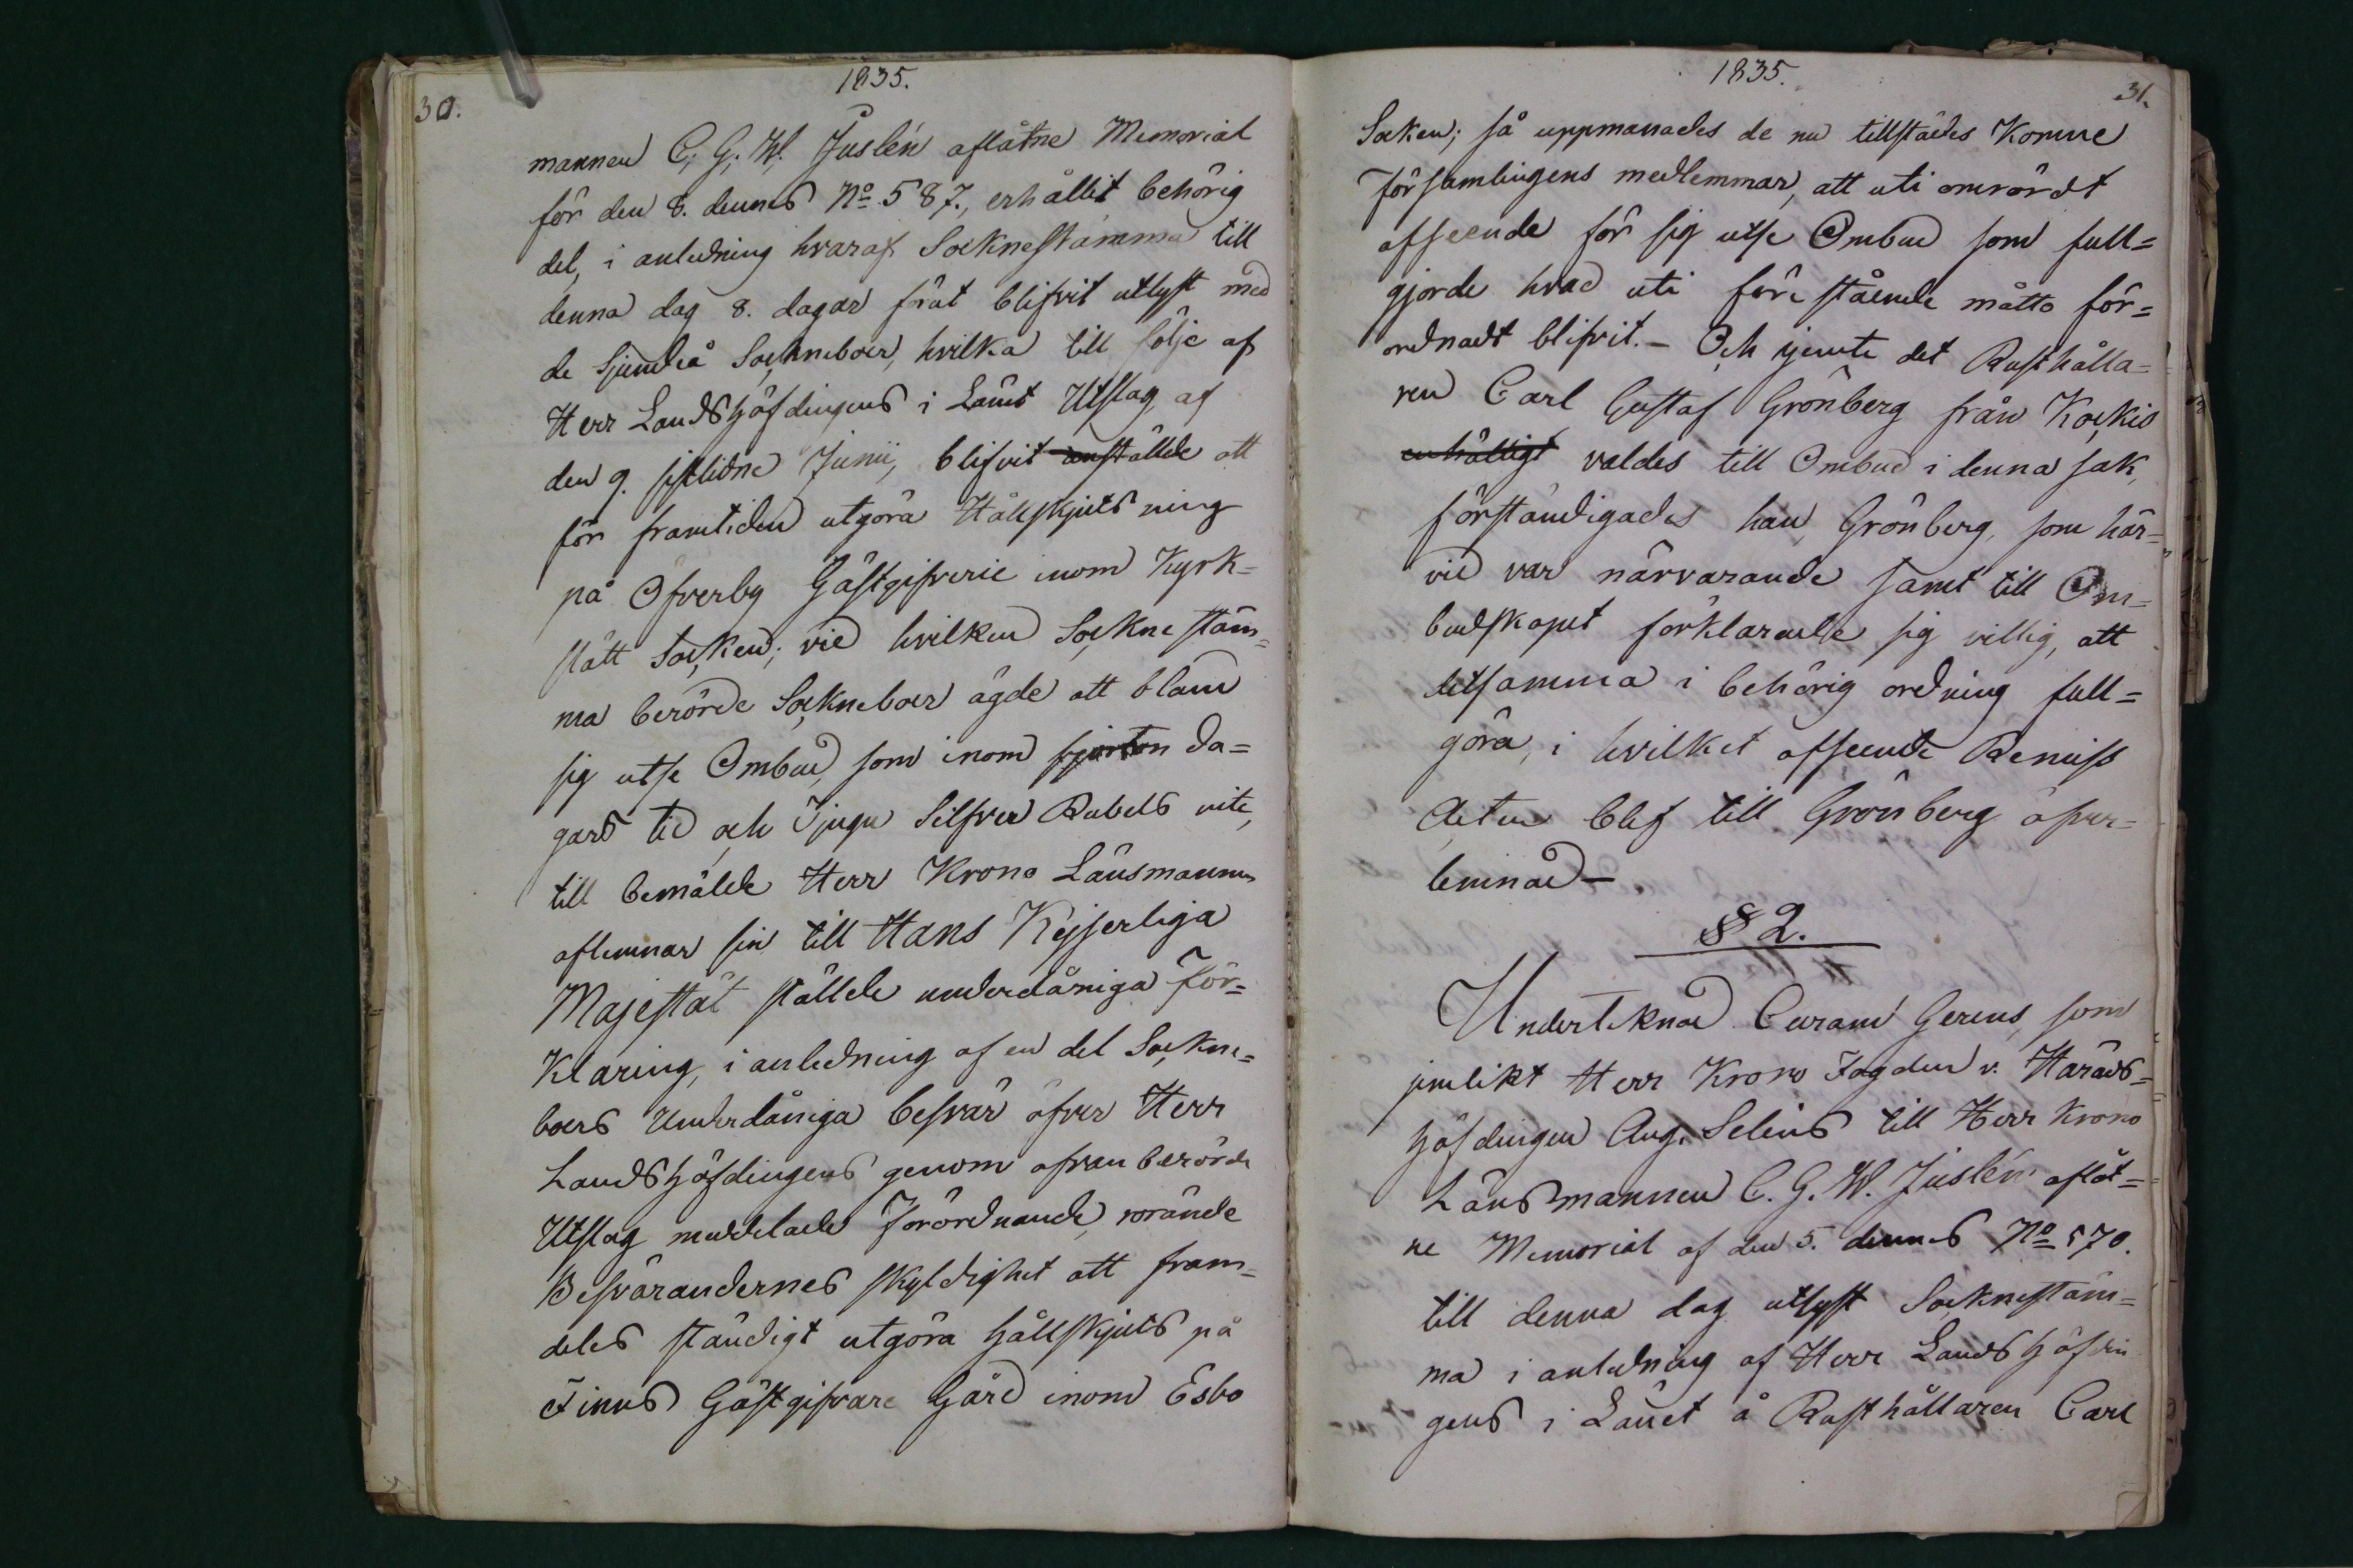 1835.
30.
mannen C. G. W. Juslén aflåtne Memorial
för den 8. dennes No 587., erhållit behörig
del, i anledning hvaraf Socknestämma till
denna dag 8. dagar förut blifvit utlyst med
de Sjundeå Sockneboer, hvilka till följe af
Herr Landshöfdingens i Länet Utslag af
den 9. sistlidne Junii, blifvit anstälde att
för framtiden utgöra Hållskjutsning
på Öfverby Gästgifverie inom Kyrk=
slätt Socken; vid hvilken Socknestäm=
ma berörde Sockneboer ägde att bland
sig utse Ombud, som inom fjorton da=
gars tid och Tjugu Silfver Rubels vite,
till bemälde Herr Krono Länsmannen
aflemnar sin till Hans Kejserliga
Majestät stälde underdåniga För=
klaring, i anledning af en del Sockne=
boers Underdåniga besvär öfver Herr
Landshöfdingens genom ofvanberörde
Utslag meddelade Förordnande, rörande
Besvärandernes skyldighet att fram=
deles ständigt utgöra hållskjuts på
Finns Gästgifvare Gård inom Esbo
1835.
31.
Socken; så uppmanades de nu tillstädes Komne
Församlingens medlemmar, att uti omrördt
afseende för sig utse Ombud som full=
gjorde hvad uti föreståenede måtto för=
ordnadt blifvit. – Och jemte det Rusthålla=
ren Carl Gustaf Grönberg från Kockis
enhälligt valdes till Ombud i denna sak,
förständigades han, Grönberg, som här=
vid var närvarande samt till Om=
budskapet förklarade sig villig, att
detsamma i behörig ordning full=
göra, i hvilket afseende Remiss
Acten blef till Grönberg öfver=
lemnad –
§ 2.
Undertcknad Curam Gerens, som
jemlikt Herr Krono Fogden v. Härads=
höfdingen Aug. Selins till Herr Krono
Länsmannen C. G. W. Juslén aflåt=
ne Memorial af den 5. dennes No 570.
till denna dag utlyst Socknestäm=
ma i anledning af Herr Landshöfdin
gens i Länet å Rusthållaren Carl